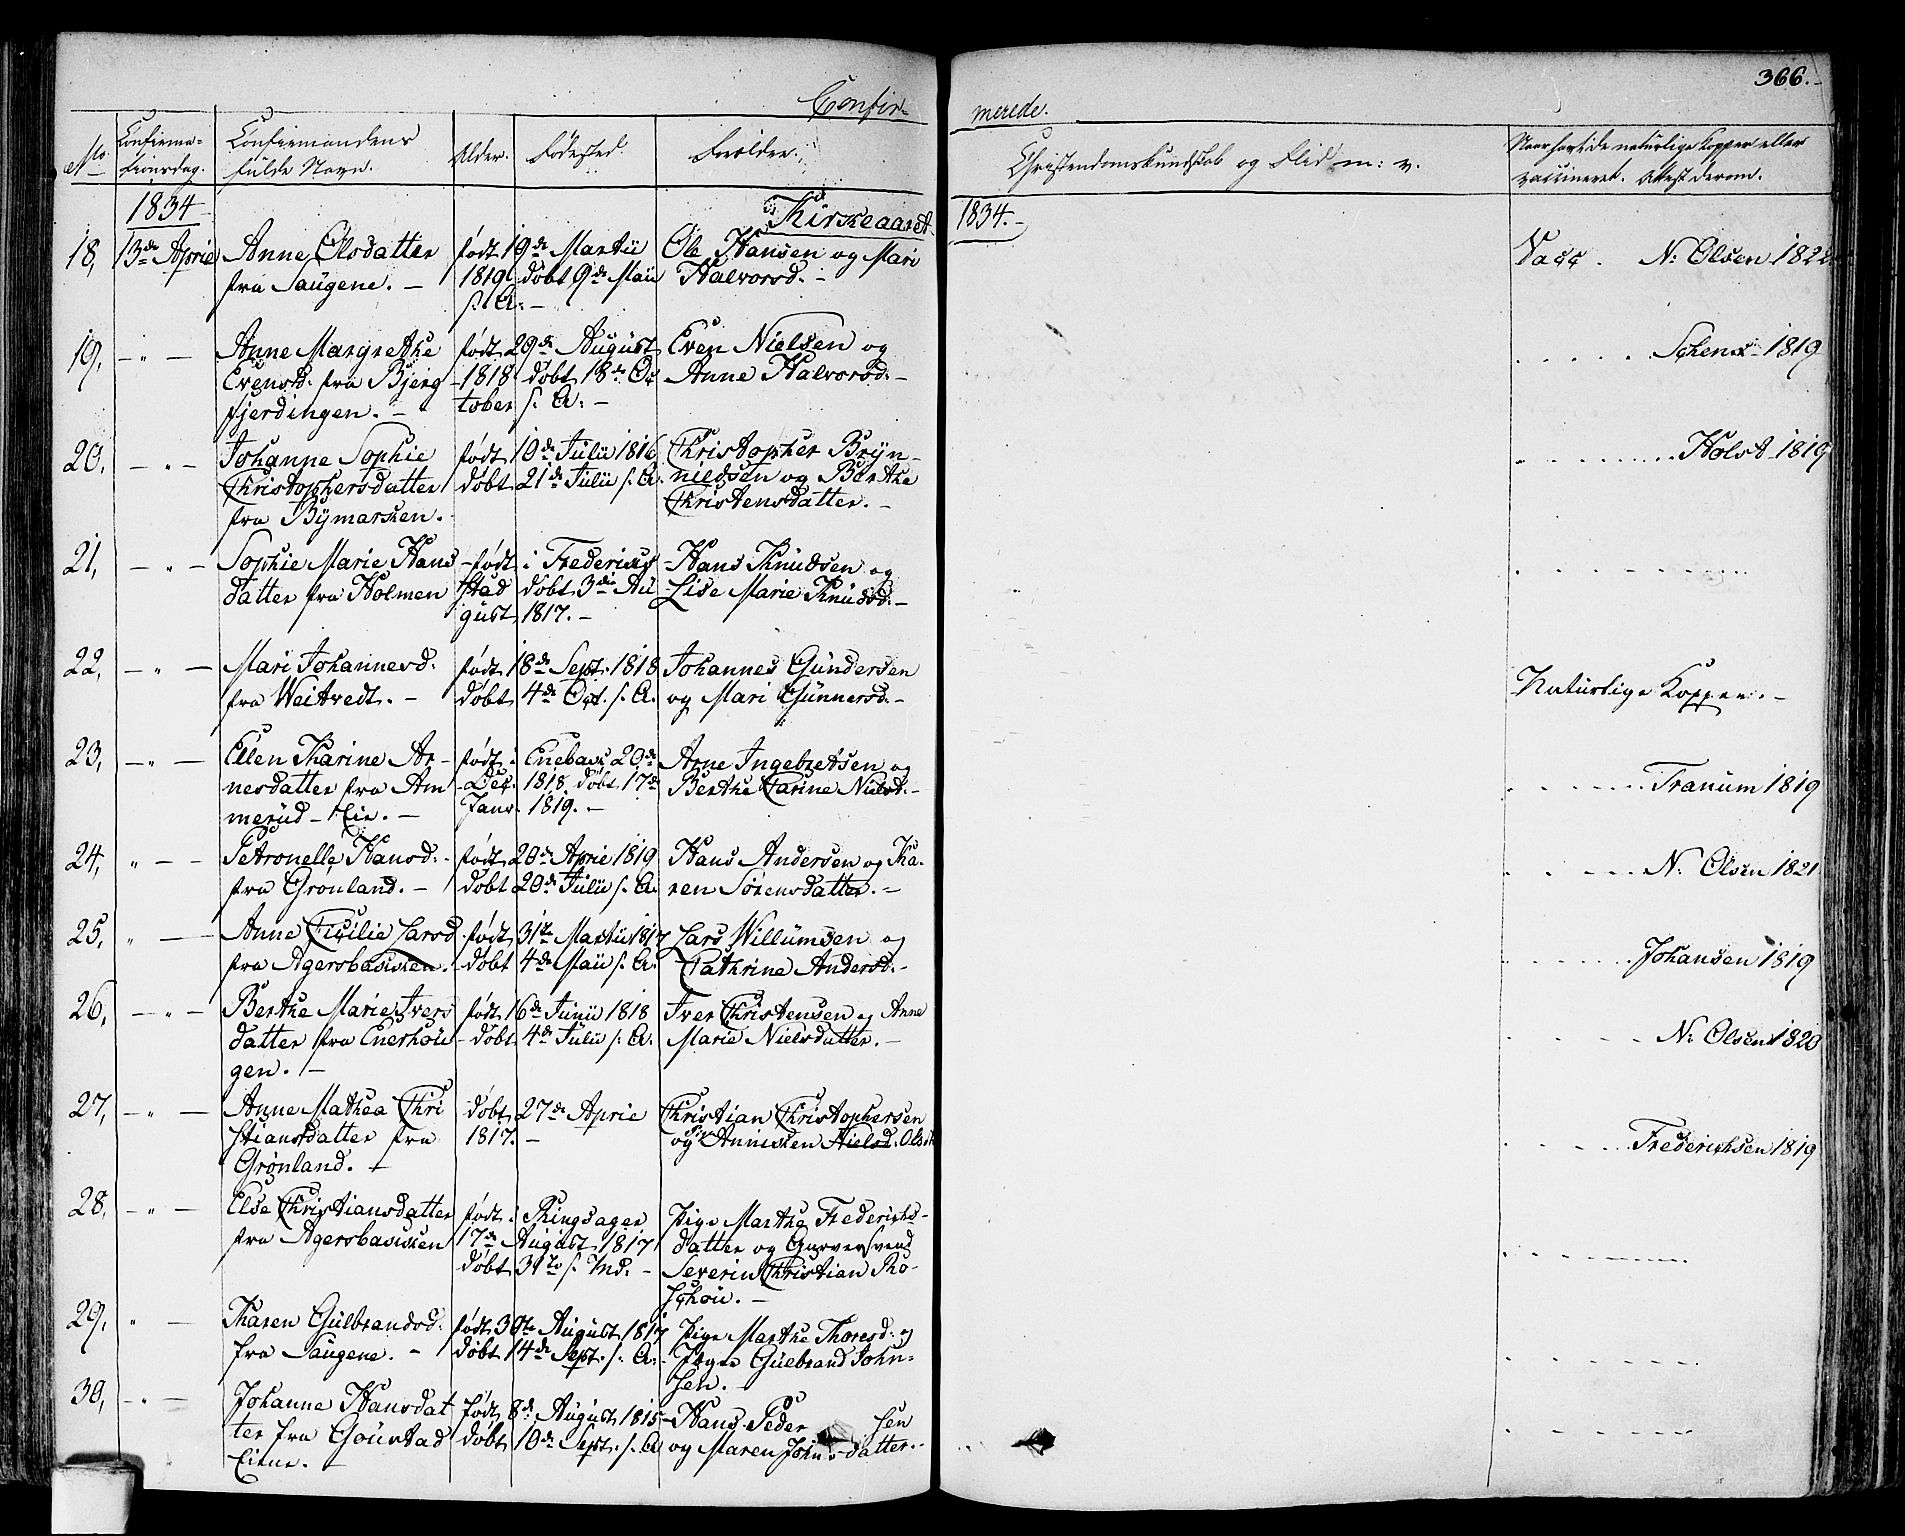 366.
Confir- merede.
No. Confirma- Confirmandens Alder. Födested. Forældre. Christendomskundskab og Flid m: v. Naar havt de naturlige Kopper eller
tionsdag. fulde Navn. vaccineret. Attest derom.
1834 Kirkeaaret 1834.-
18, 13de April Anne Olsdatter født 19de Martii Ole Hansen og Mari Vacc. N: Olsen 1822
fra Saugene. - 1819 døbt 9de Maii Halvorsd. -
s. A. -
19, - " - Anne Margrethe født 29de August Even Nielsen og . . . . . Schenck 1819
Evensd: fra Bjerg 1818 døbt 18de Oc Anne Halvorsd: -
fjerdingen. - tober s. A: -
20, - " - Johanne Sophie født 10de Julii 1816 Christopher Bryn- . . . . . Holst 1819
Christophersdatter døbt 21de Julii s. A. nildsen og Berthe
fra Bymarken. - Christensdatter. -
21, - " - Sophie Marie Hans født i Frederiks Hans Knudsen og . . . . .
datter fra Holmen stad døbt 3die Au Lise Marie Knudsd: -
gust 1817. -
22, - " - Mari Johannesd: født 18de Sept. 1818 Johannes Gundersen
fra Weitvedt. - døbt 4de Oct. s. A. og Mari Gunnersd. - Naturlige Kopper. -
23, - " - Ellen Karine Ar- født i Enebak 20de Arne Ingebretsen og
nesdatter fra Am Dec. 1818 døbt 17de Berthe Carine Nielsd. - . . . . . Tranum 1819
merud-Eie. - Janr. 1819. -
24, " - - Petronelle Hansd: født 20de April 1819 Hans Andersen og Ka- . . . . . N: Olsen 1821
fra Grønland. - døbt 20de Julii s. A. ren Sørensdatter. -
25, " - Anne Cicilie Larsd født 31te Martii 1817 Lars Willumsen og . . . . . Johansen 1819
fra Agersbakken. døbt 4de Maii s. A: Cathrine Andersd. -
26, - " - Berthe Marie Ivers født 6de Junii 1818 Iver Christensen og Anne . . . . . N: Olsen 1820
datter fra Enerhou døbt 4de Julii s. A. Marie Nielsdatter. -
gen. -
27, - " - Anne Mathea Chri døbt 27de April Christian Christophersen . . . . . Frederichsen 1819
stiansdatter fra 1817. - og Anniken Nielsd: Olsd
Grønland. -
28, - " - Else Christiansdatter født i Ringsager Pige Marthe Frederichs- . . . . .
fra Agersbakken 17de August 1817 datter og Garversvend
døbt 31te s. Md. - Severin Christian Ro-
schou. -
29, " - Karen Gulbrandsd: født 30te August 1817 Pige Marthe Thoresd: og . . . . .
fra Saugene. - døbt 14de Sept. s. A: Gulbrand John-
sen. -
30, - " - Johanne Hansdat født 8de August 1815 Hans Peder sen . . . . .
ter fra døbt 10de Sept. s. A og Maren Johnsdatter. -
Eiene. -